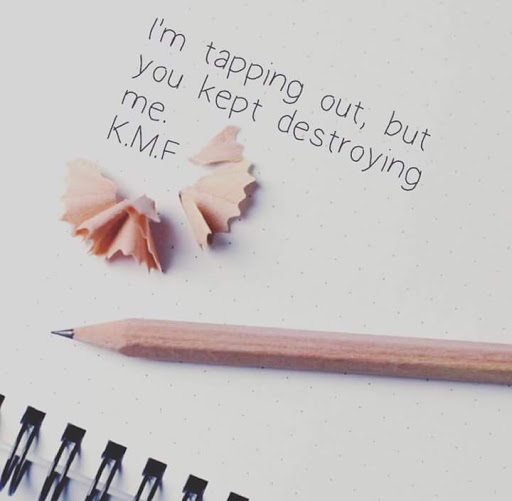 I'm tapping out, but
you kept destroying
me.
K.M.F